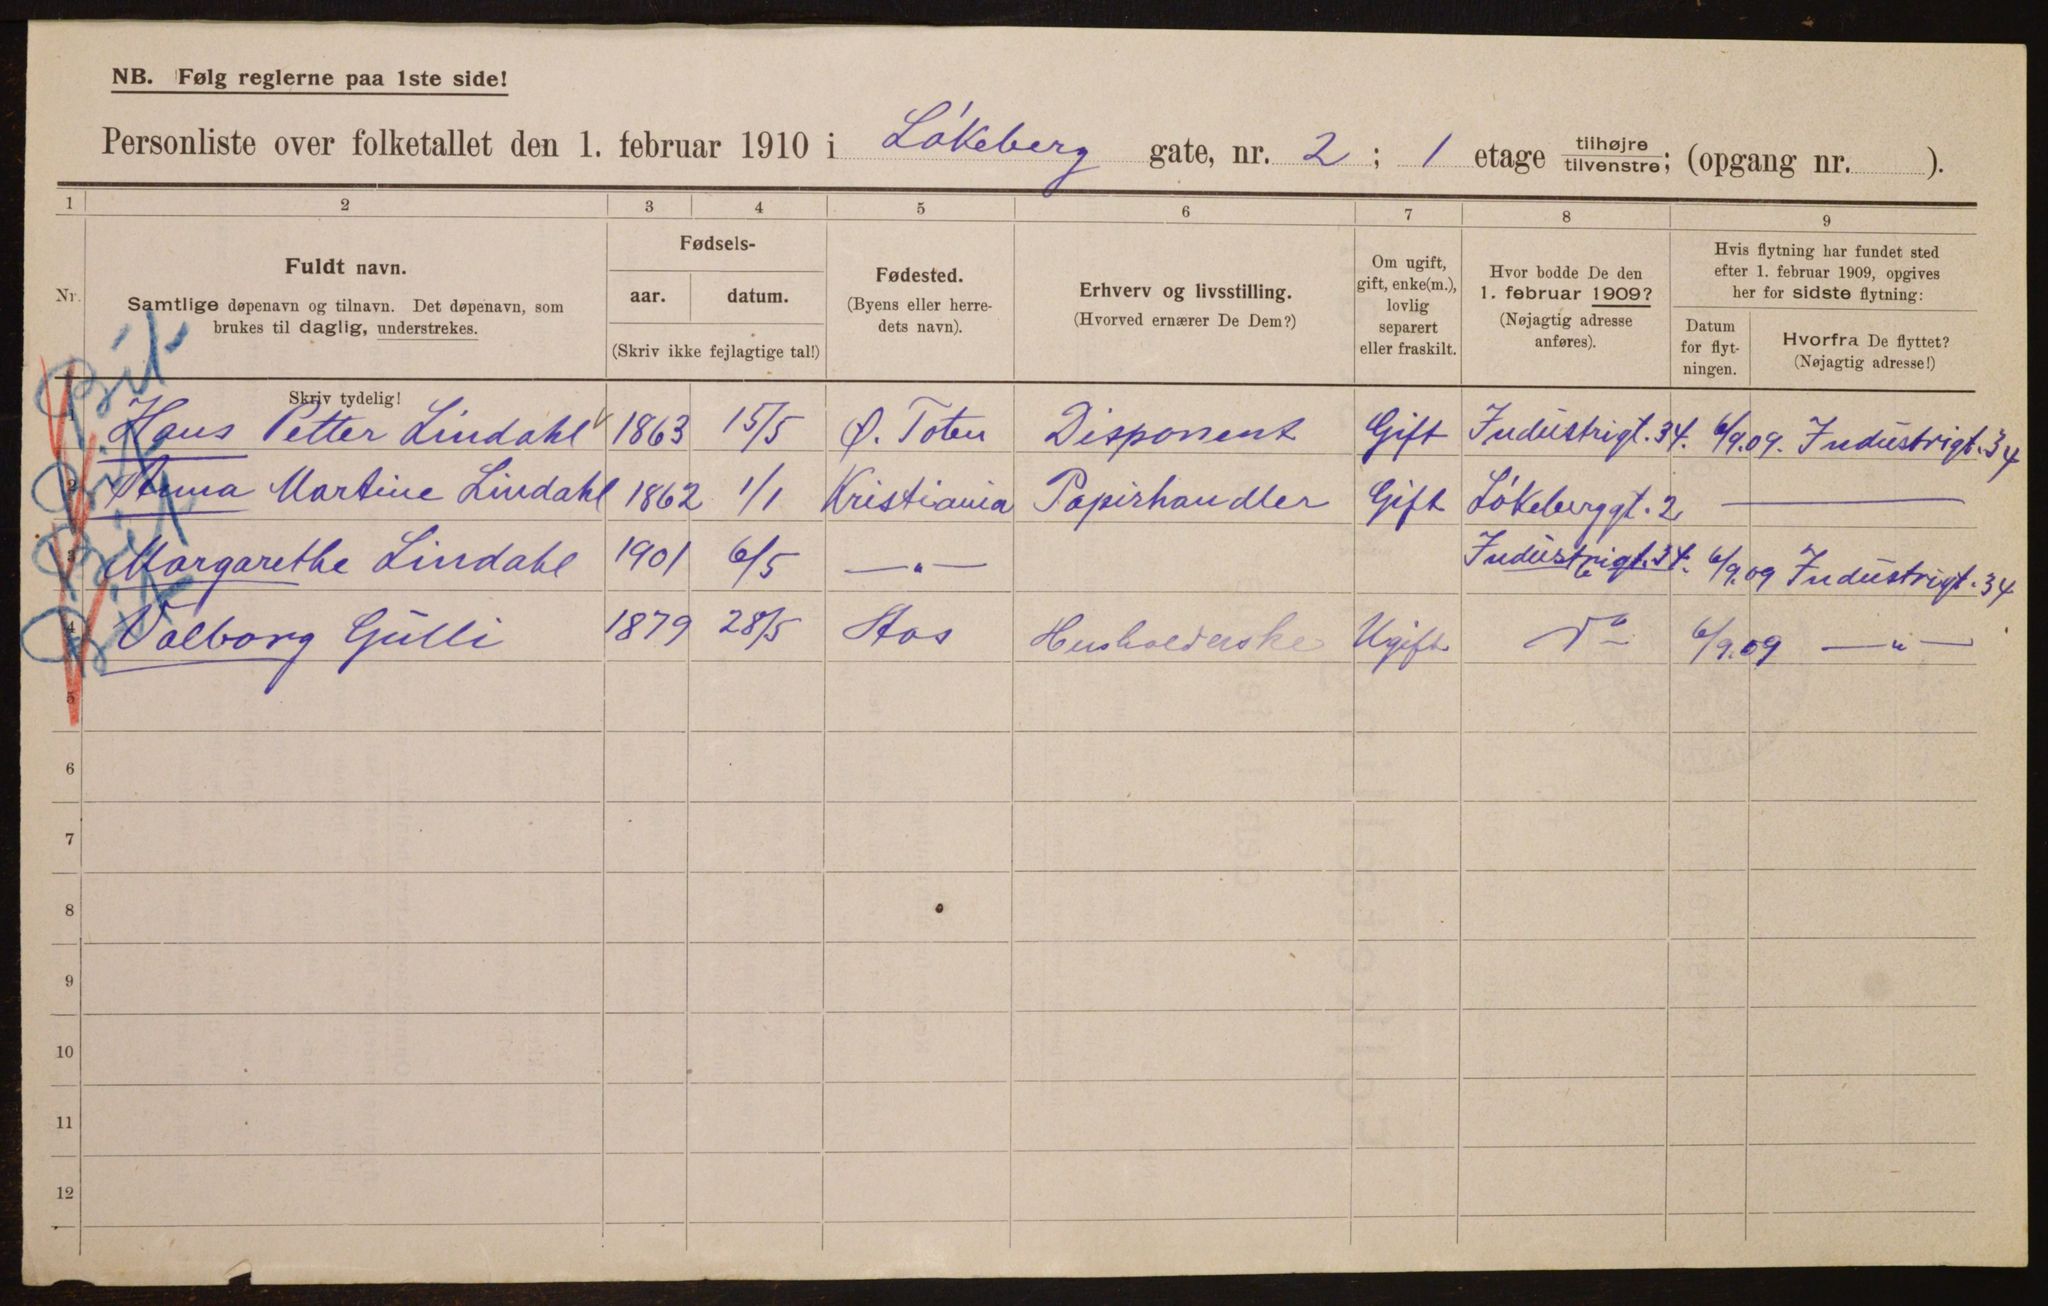 NB. Følg reglerne paa 1ste side!
Personliste over folketallet den 1. februar 1910 i Løkeberg gate, nr. 2 ; 1 etage tilhøjre/tilvenstre; (opgang nr. ).
1 2 3 4 5 6 7 8 9
Nr.
Fuldt navn.
Samtlige døpenavn og tilnavn. Det døpenavn, som
brukes til daglig, understrekes.
Skriv tydelig!
Fødsels-
aar. datum.
(Skriv ikke fejlagtige tal!)
Fødested.
(Byens eller herre-
dets navn).
Erhverv og livsstilling.
(Hvorved ernærer De Dem?)
Om ugift,
gift, enke(m.),
lovlig
separert
eller fraskilt.
Hvor bodde De den
1. februar 1909?
(Nøjagtig adresse
anføres).
Hvis flytning har fundet sted
efter 1. februar 1909, opgives
her for sidste flytning:
Datum
for flyt-
ningen.
Hvorfra De flyttet?
(Nøjagtig adresse!)
1 Hans Petter Lindahl 1863 15/5 Ø. Toten Disponent Gift Industrigt. 34. 6/9.09. Industrigt. 34
2 Anna Martine Lindahl 1862 1/1 Kristiania Papirhandler Gift Løkeberggt. 2 —
3 Margarethe Lindahl 1901 6/5 —"— Industrigt. 34. 6/9.09 Industrigt. 34
4 Valborg Gulli 1879 28/5 Aas Husholderske Ugift Do 6/9.09 —"—
5
6
7
8
9
10
11
12